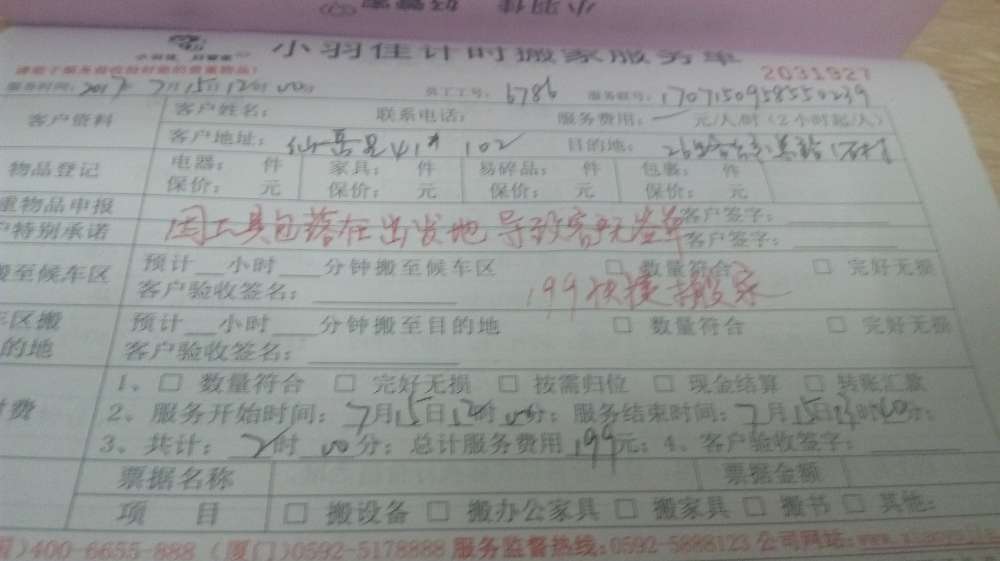 小羽佳计时搬家服务单
2031927
服务时间：2017年7月15日12时00分 员工工号：6786 服务账号：1707150958550239
客户资料 客户姓名： 联系电话： 服务费用：元/人/时（2小时起/人）
客户地址： 102 目的地：
物品登记 电器： 件 家具： 件 易碎品： 件 包裹： 件
保价： 元 保价： 元 保价： 元 保价： 元
重物品申报 客户签字：
特别承诺 客户签字：
因工具包落在出发地导致客户无签单
搬至候车区 预计 小时 分钟搬至候车区 □ 数量符合 □ 完好无损
客户验收签名：
199快捷搬家
车区搬 预计 小时 分钟搬至目的地 □ 数量符合 □ 完好无损
的地 客户验收签名：
1、□ 数量符合 □ 完好无损 □ 按需归位 □ 现金结算 □ 转账汇款
付费 2、服务开始时间：7月15日12时00分；服务结束时间：7月15日13时00分；
3、共计：2时00分；总计服务费用199元；4、客户验收签字：
票据名称 票据金额
项 目 □ 搬设备 □ 搬办公家具 □ 搬家具 □ 搬书 □ 其他：
)400-6655-888（厦门)0592-5178888 服务监督热线：0592-5888123 公司网站：www.